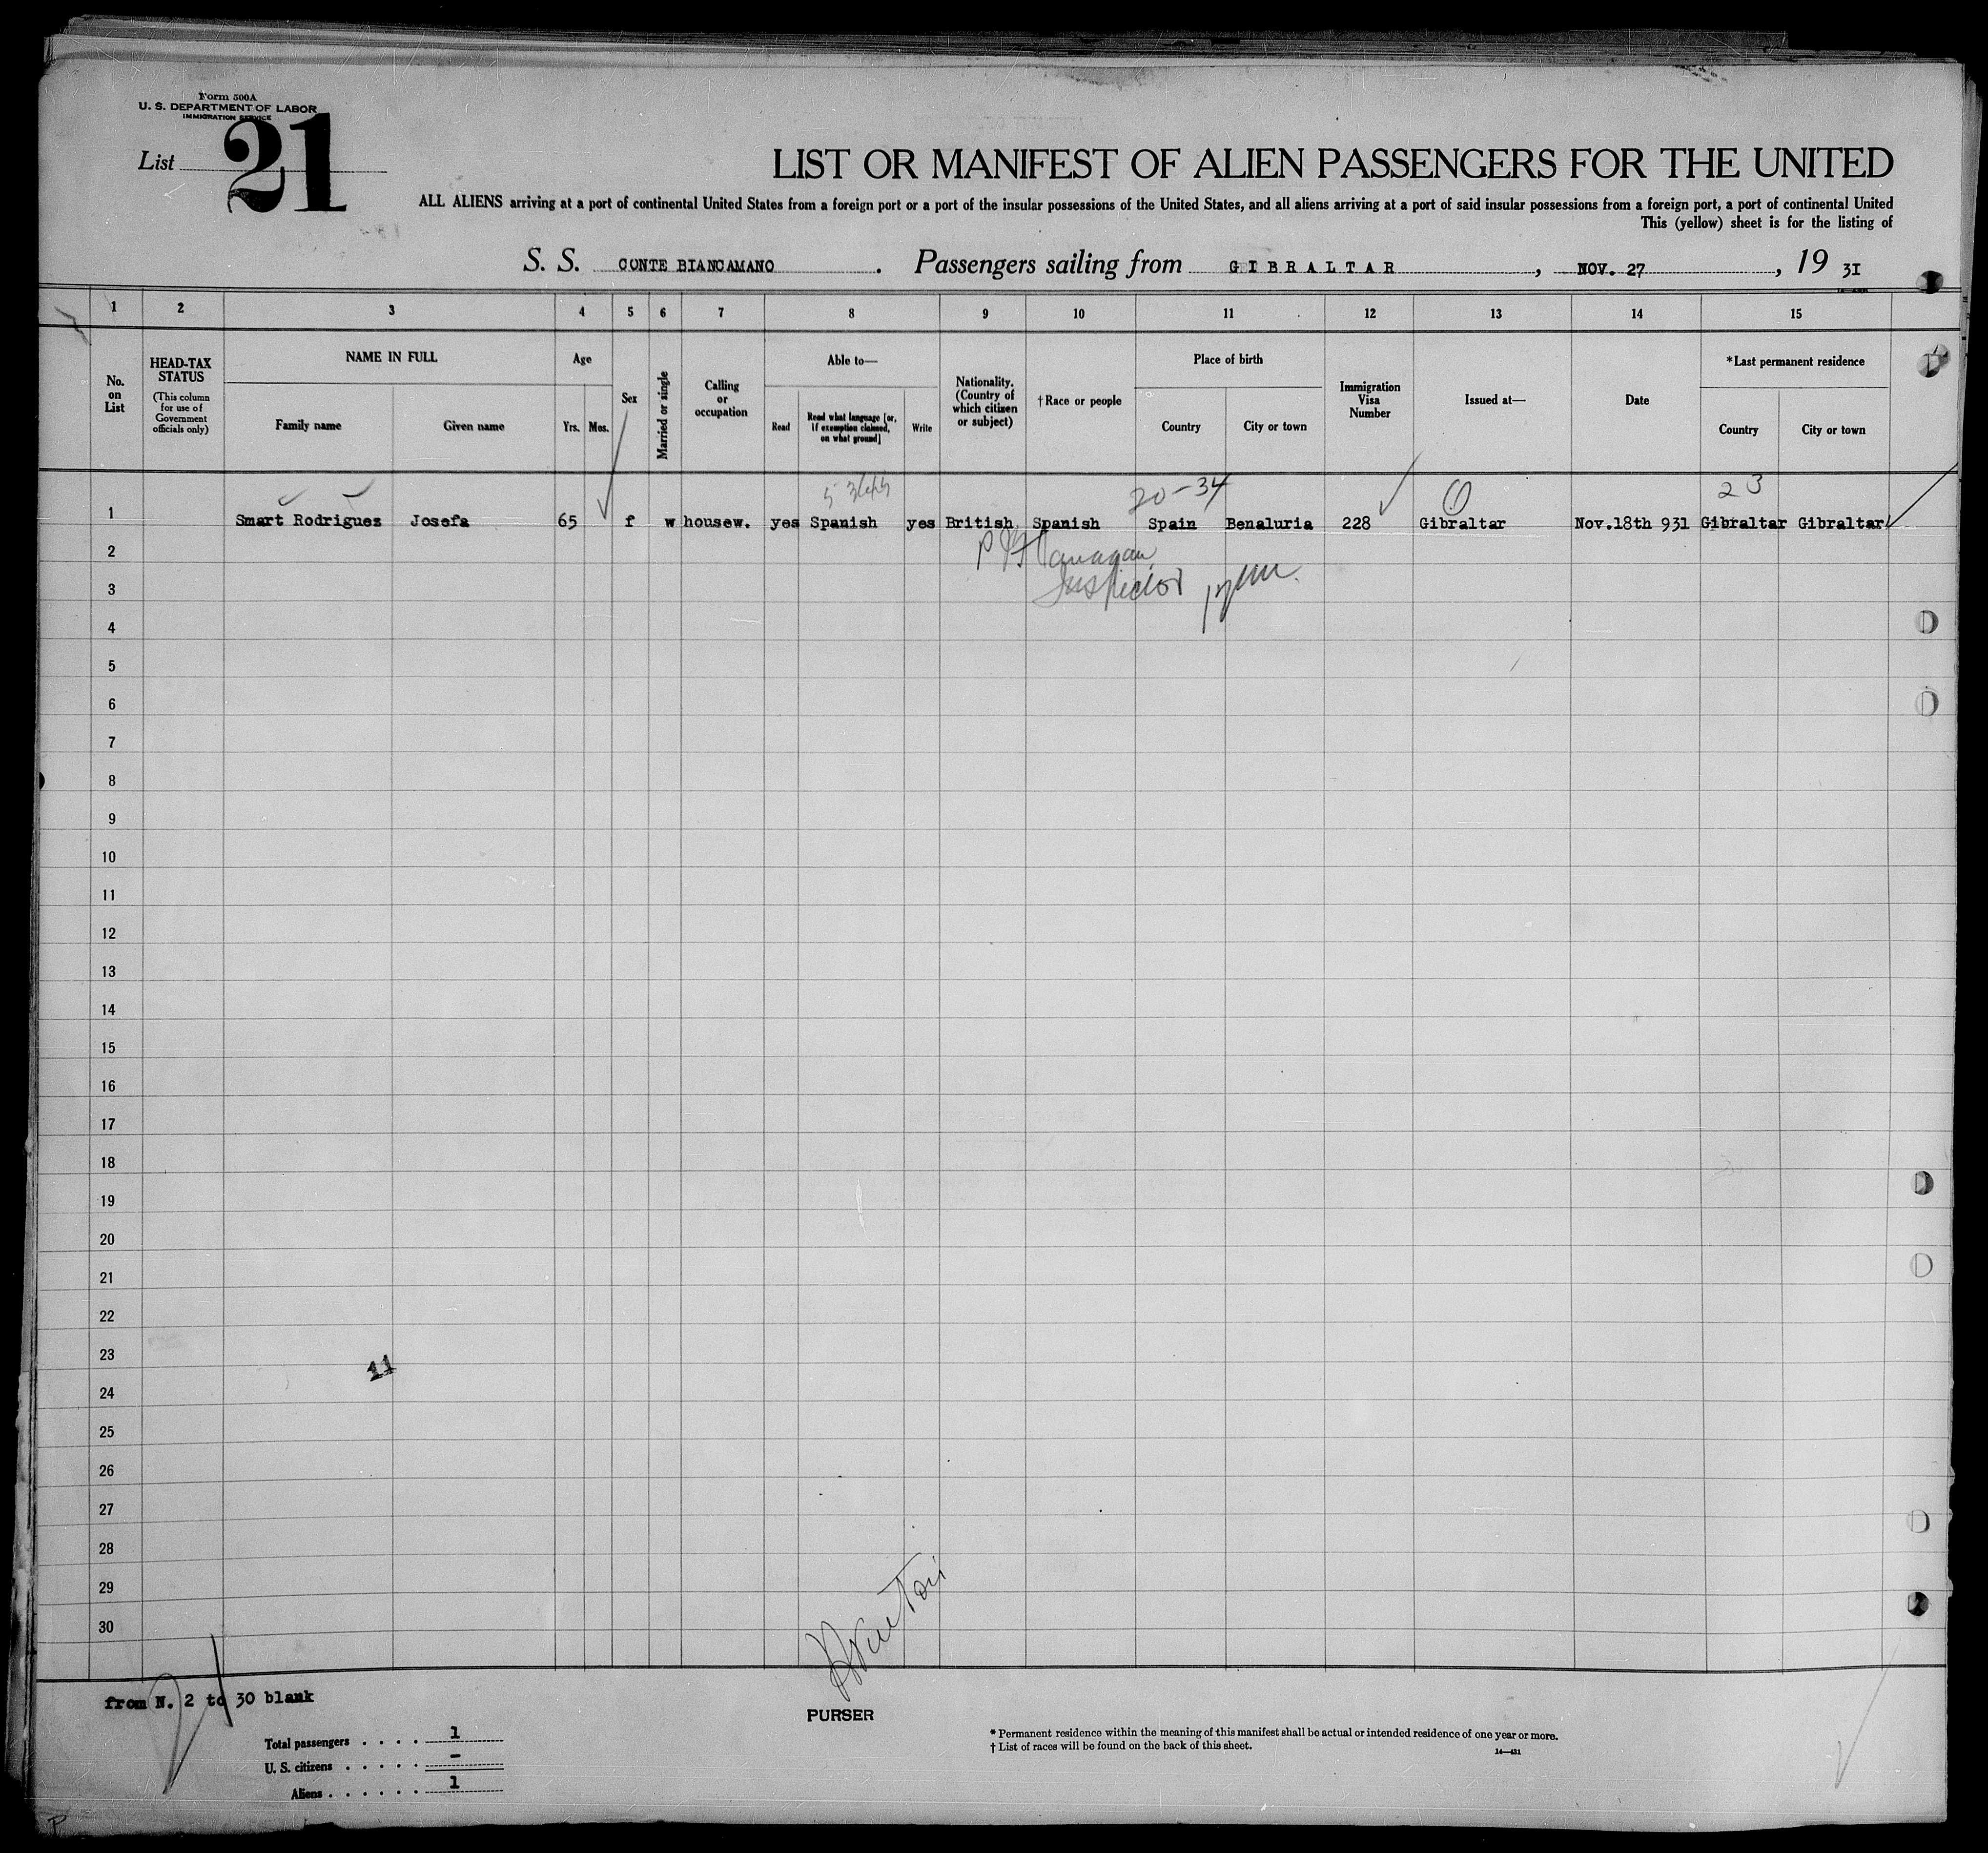 Form 500A
U. S. DEPARTMENT OF LABOR
IMMIGRATION SERVICE
List 21
LIST OR MANIFEST OF ALIEN PASSENGERS FOR THE UNITED
ALL ALIENS arriving at a port of continental United States from a foreign port or a port of the insular possessions of the United States, and all aliens arriving at a port of said insular possessions from a foreign port, a port of continental United
This (yellow) sheet is for the listing of
S. S. CONTE BIANCAMANO . Passengers sailing from GIBRALTAR , NOV. 27 , 19 31
1 2 3 4 5 6 7 8 9 10 11 12 13 14 15
No. on List
HEAD-TAX STATUS
(This column for use of Government officials only)
NAME IN FULL
Family name Given name
Age
Yrs. Mos.
Sex
Married or single
Calling or occupation
Able to—
Read
Read what language [or, if exemption claimed, on what ground]
Write
Nationality. (Country of which citizen or subject)
†Race or people
Place of birth
Country City or town
Immigration Visa Number
Issued at—
Date
*Last permanent residence
Country City or town
20-34
23
1 Smart Rodriguez Josefa 65 f w housew. yes Spanish yes British Spanish Spain Benaluria 228 Gibraltar Nov.18th 931 Gibraltar Gibraltar
2
P Flanagan
3
Inspector
4
5
6
7
8
9
10
11
12
13
14
15
16
17
18
19
20
21
22
23
11
24
25
26
27
28
29
30
from N. 2 to 30 blank
21
PURSER
Total passengers . . . . 1
U. S. citizens . . . . . –
Aliens . . . . . . 1
* Permanent residence within the meaning of this manifest shall be actual or intended residence of one year or more.
† List of races will be found on the back of this sheet.
14—421
P